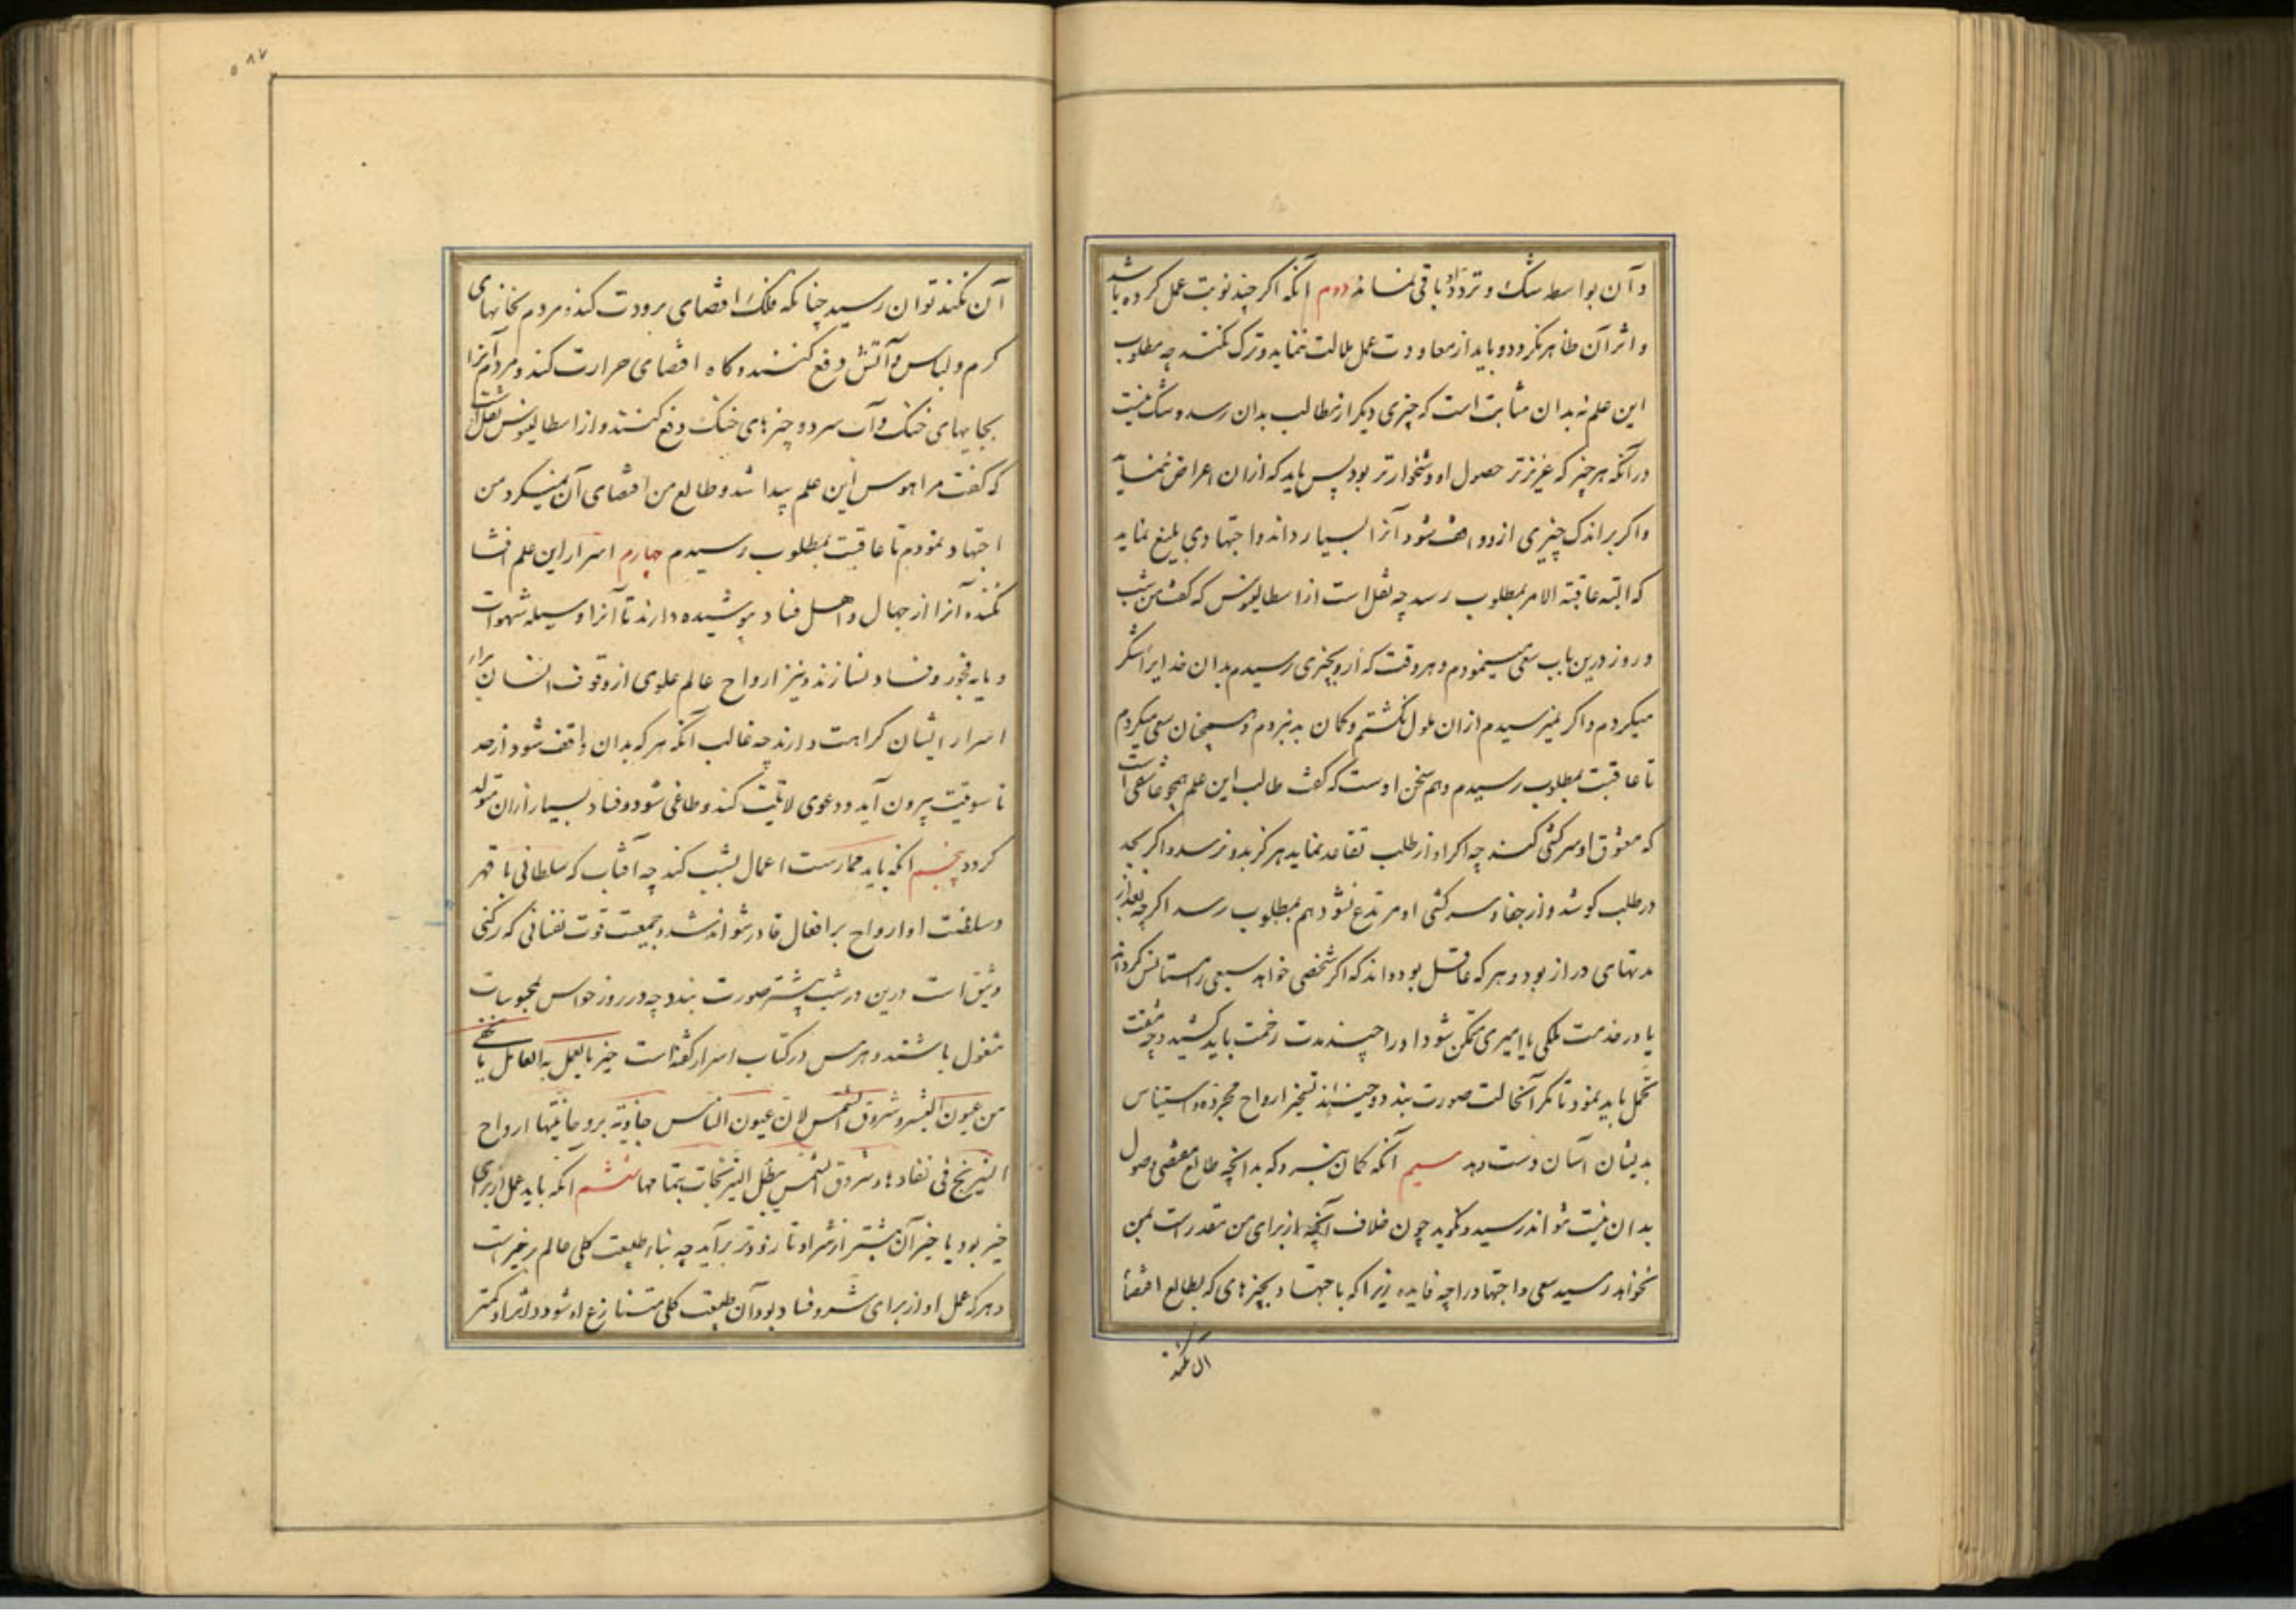 و آن بواسطه شک و تردّد باقی نماند دوم آنکه اکر چند نوبت عمل کرده باشد
و اثر آن ظاهر نکردد و باید از معاودت عمل ملالت ننماید و ترک نکند چه مطلوب
این علم نه بدان مثابت است که چیزی دیکر از مطالب بدان رسد و شک نیست
در آنکه هر چیز که عزیزتر حصول او دشخوارتر بود پس باید که ازان اعراض ننماید
و اکر بر اندک چیزی ازو واقف شود آنرا بسیار داند و اجتهادی بلیغ نماید
که البته عاقبة الامر بمطلوب رسد چه نقل است از اسطالینوس که کفت من شب
و روز درین باب سعی مینمودم و هر وقت که ازو بچیزی رسیدم بدان خدایرا شکر
میکردم و اکر نمیرسیدم ازان ملول نکشتم و کمان بد نبردم و همچنان سعی میکردم
تا عاقبت بمطلوب رسیدم و هم سخن اوست که کفت طالب این علم همچو عاشقی است
که معشوق او سرکشی کند چه اکر او از طلب تقاعد نماید هرکز بدو نرسد و اکر بجد
در طلب کوشد و از جفا و سرکشی او مرتدع نشود هم بمطلوب رسد اکر چه بعد از
مدتهای دراز بود و هر که عاقل بود داند که اکر شخصی خواهد سبعی را مستانس کرداند
یا در خدمت ملکی یا امیری متمکن شود او را چند مدت زحمت باید کشید و چه مشقت
تحمل باید نمود تا مکر آنحالت صورت بندد و جینند تسخیر ارواح مجرّده و استیناس
بدیشان آسان دست دهد سیم آنکه کمان نبرد که بدانچه طالع مقتضی وصول
بدان نیست نتواند رسید و نکوید چون خلاف آنچه از برای من مقدر است بمن
نخواهد رسید سعی و اجتهاد را چه فایده زیرا که باجتهاد بچیزهای که بطالع اقتضا
آن نکند
۵۸۷
آن نکند توان رسید چنانکه فلک اقتضای برودت کند و مردم بخانهای
کرم و لباس و آتش دفع کنند و کاه اقتضای حرارت کند و مردم آنرا
بجایهای خنک و آب سرد و چیزهای خنک دفع کنند و از اسطالینوس نقل است
که کفت مرا هوس این علم پیدا شد و طالع من اقتضای آن نمیکرد من
اجتهاد نمودم تا عاقبت بمطلوب رسیدم چهارم اسرار این علم افشا
نکند و آنرا از جهال و اهل فساد پوشیده دارند تا آنرا وسیله شهوات
و مایه فجور و فساد نسازند و نیز ارواح عالم علوی از وقوف انسان بر
اسرار ایشان کراهت دارند چه غالب آنکه هر که بدان واقف شود از حد
ناسوتیت بیرون آید و دعوی لاهوتیت کند و طاغی شود و فساد بسیار ازان متولد
کردد پنجم آنکه باید ممارست اعمال بشب کند چه آفتاب که سلطانی با قهر
و سلطنت او ارواح بر افعال قادر نتواند شد و جمعیت قوت نفسانی که رکنی
وثیق است درین در شب بیشتر صورت بندد چه در روز حواس بمحبوسات
مشغول باشند و هرمس در کتاب اسرار کفته است خیر ما یعمل به العامل ما یخفی
من عیون البشر و شروق الشمس لان عیون الناس جاذبة بروحانیتها ارواح
النیرنج فی نفادها و شروق الشمس یبطل النیرنجات بتمامها ششم آنکه باید عمل از برای
خیر بود یا خیر آن بیشتر از شر او تا زودتر برآید چه بناء طبیعت کلی عالم بر خیر است
و هر که عمل او از برای شر و فساد بود آن طبیعت کلی متنازع او شود و اثر او کمتر